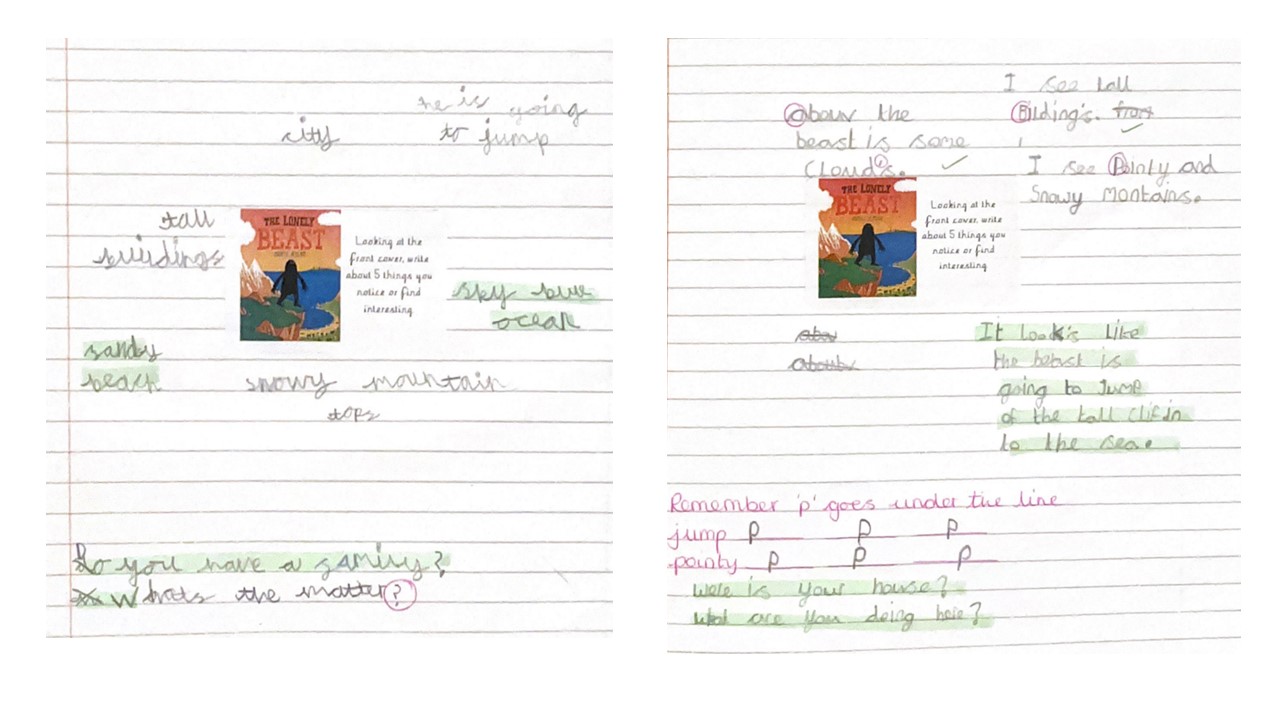 he is going
city to jump
tall
buildings
THE LONELY
BEAST
Looking at the
front cover, write
about 5 things you
notice or find
interesting
sky blue
ocean
sandy
beach
snowy mountain
tops
Do you have a family?
Whats the matter?
I see tall
abow the
Bilding's. from
beast is some
Cloud's.
I see Pointy and
Snowy Montains.
THE LONELY
BEAST
Looking at the
front cover, write
about 5 things you
notice or find
interesting
abow
It look's like
the beast is
going to Jump
of the tall Clif in
to the sea.
Remember 'p' goes under the line
jump p p p
pointy p p p
were is your house?
what are you doing here?